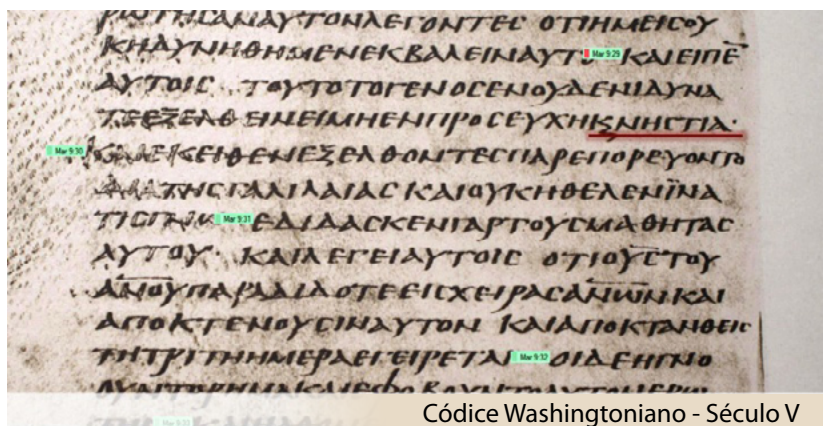 ΡΩΤΗСΑΝΑΥΤΟΝΛΕΓΟΝΤΕС ΟΤΙΗΜΕΙСΟΥ
ΚΗΔΥΝΗΘΗΜΕΝΕΚΒΑΛΕΙΝΑΥΤΟ Mar 9:29 ΚΑΙΕΙΠΕ̅
ΑΥΤΟΙС ΤΟΥΤΟΤΟΓΕΝΟСΕΝΟΥΔΕΝΙΔΥΝΑ
ΤΕΕΞΕΛΘΕΙΝΕΙΜΗΕΝΠΡΟСΕΥΧΗΚΝΗСΤΙΑ·
Mar 9:30 ΚΑΙΕΚΕΙΘΕΝΕΞΕΛΘΟΝΤΕСΠΑΡΕΠΟΡΕΥΟΝΤΟ
ΔΙΑΤΗСΓΑΛΙΛΑΙΑС ΚΑΙΟΥΚΗΘΕΛΕΝΪΝΑ
ΤΙСΓΝΩ Mar 9:31 ΕΔΙΔΑСΚΕΝΓΑΡΤΟΥСΜΑΘΗΤΑС
ΑΥΤΟΥ· ΚΑΙΛΕΓΕΙΑΥΤΟΙС ΟΤΙΟΥ̅С̅ΤΟΥ
Α̅Ν̅Ο̅Υ̅ΠΑΡΑΔΙΔΟΤΕΕΙСΧΕΙΡΑСΑ̅Ν̅Ω̅Ν̅ΚΑΙ
ΑΠΟΚΤΕΝΟΥСΙΝΑΥΤΟΝ ΚΑΙΑΠΟΚΤΑΝΘΕΙС
ΤΗΤΡΙΤΗΗΜΕΡΑΕΓΕΙΡΕΤΑΙ Mar 9:32 ΟΙΔΕΗΓΝΟ
Mar 9:33
Códice Washingtoniano - Século V